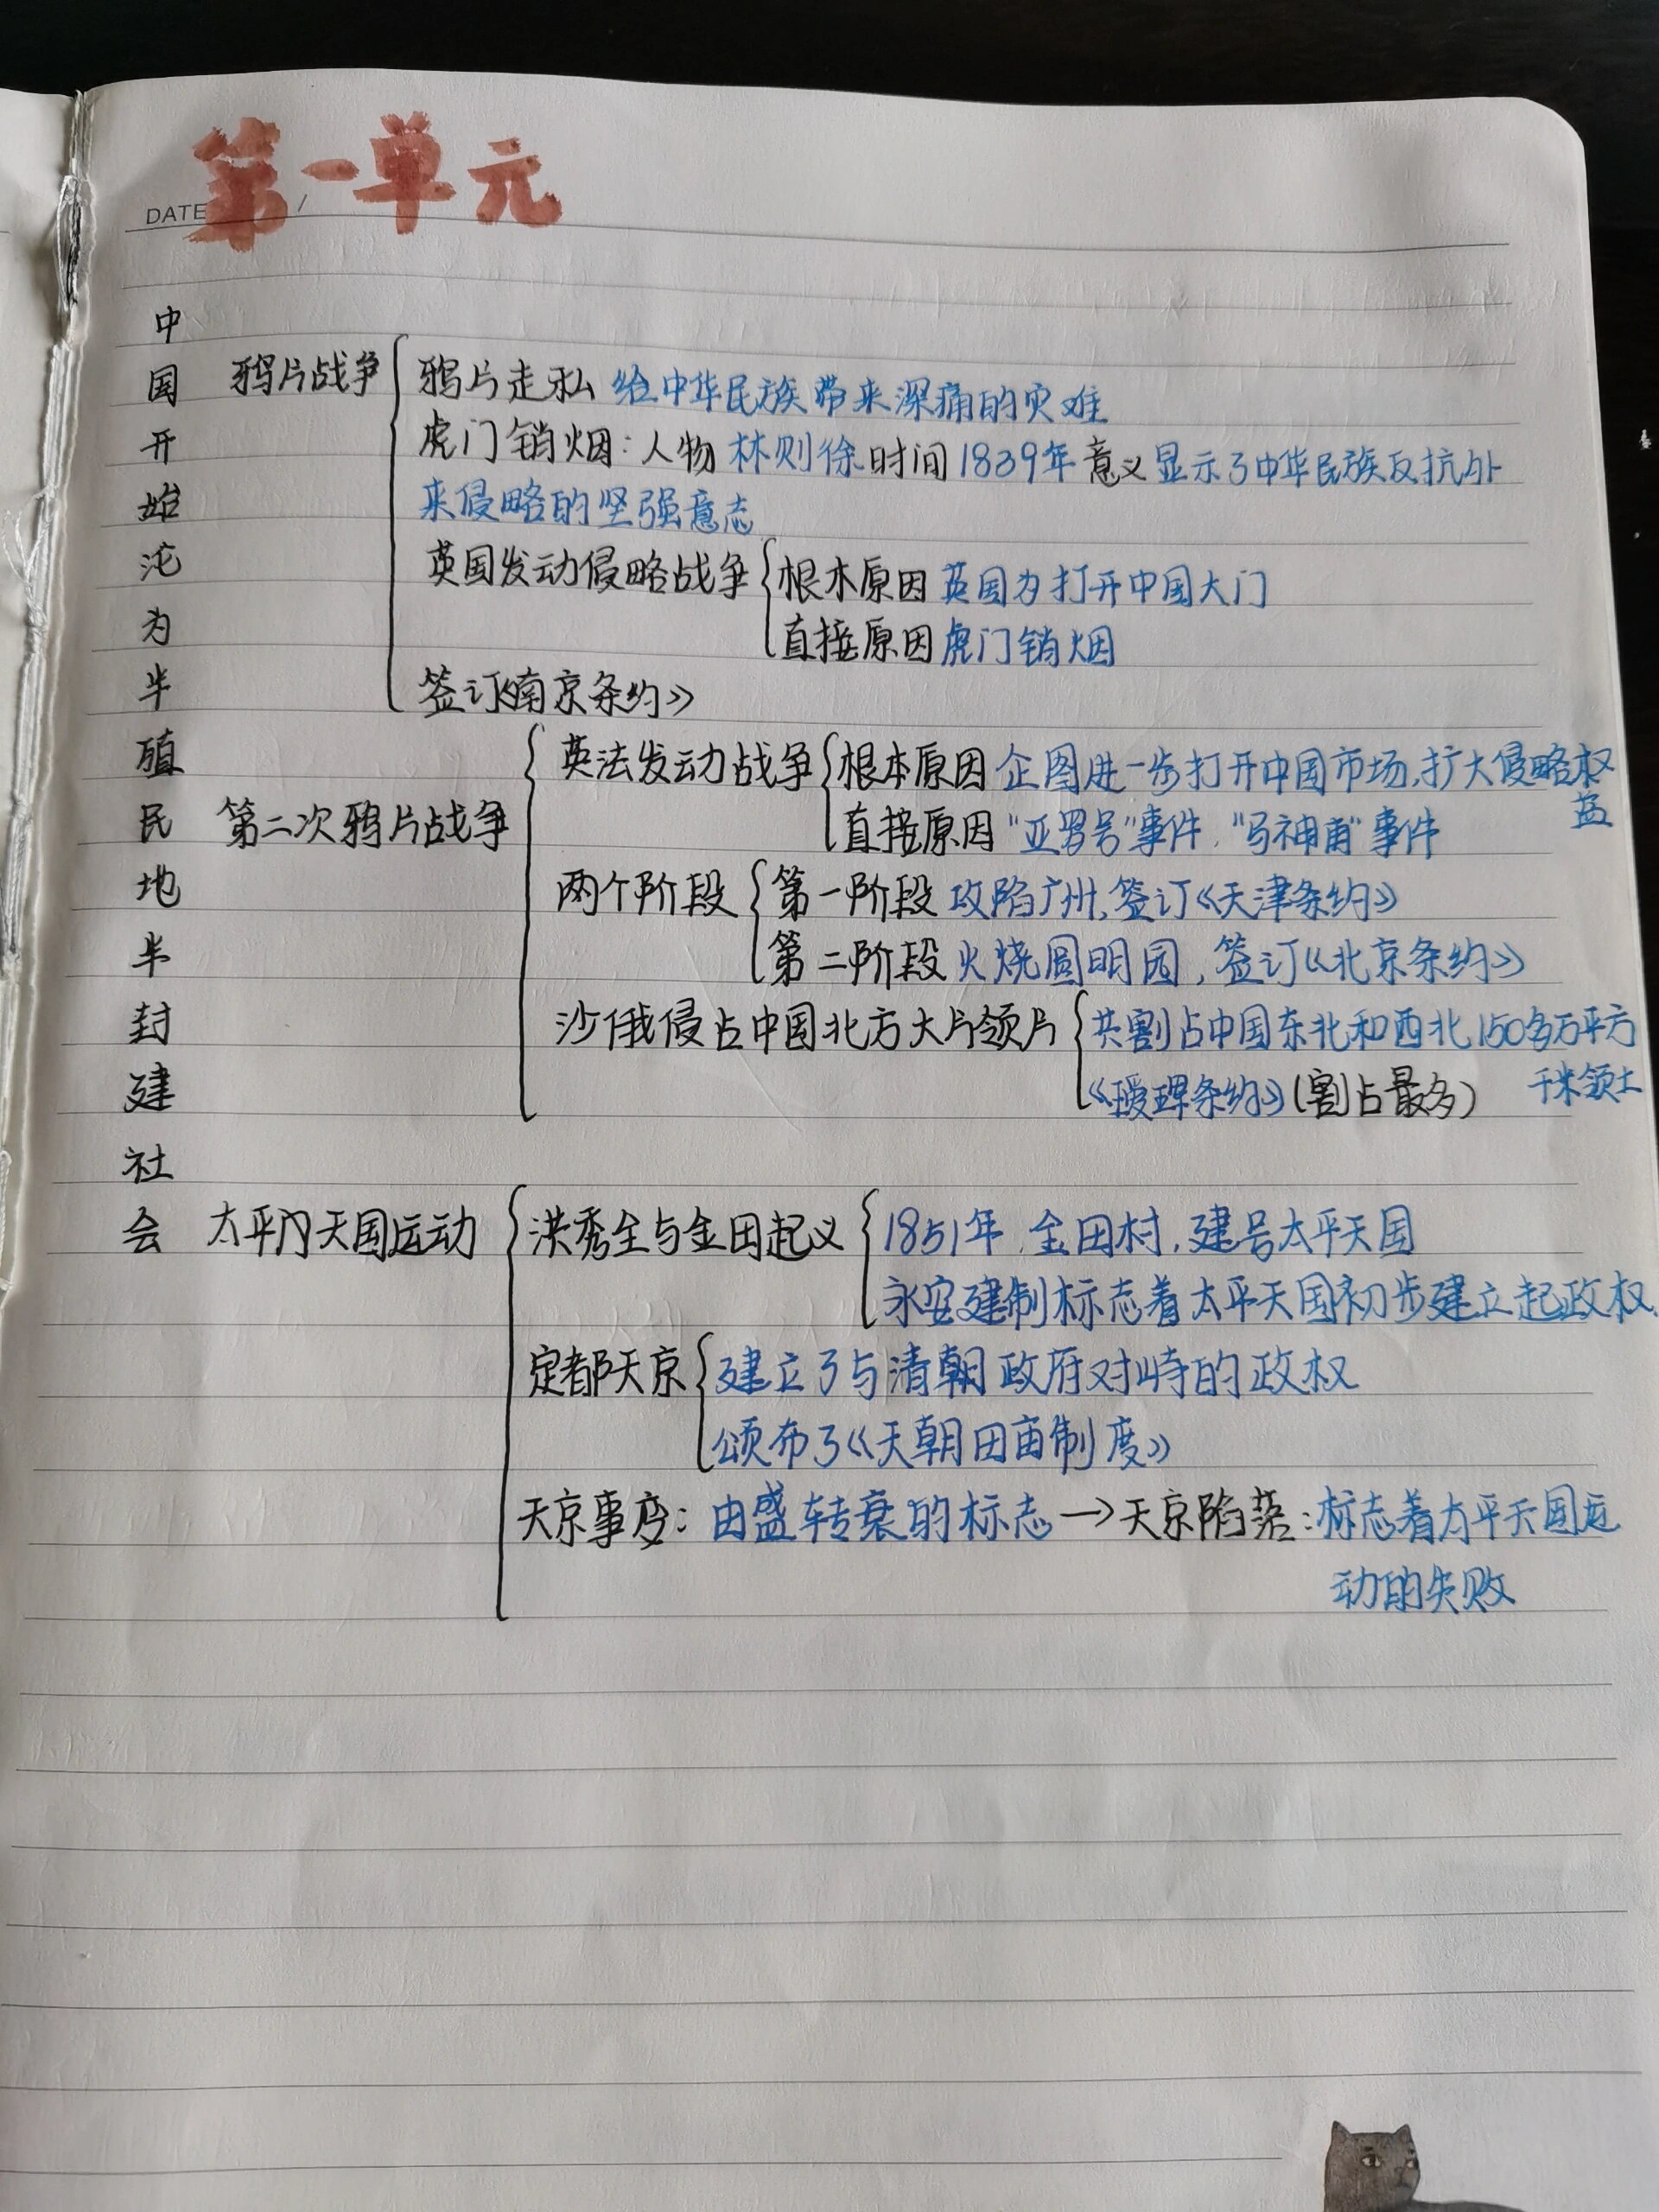 第一单元
DATE /
中国开始沦为半殖民地半封建社会
鸦片战争
鸦片走私 给中华民族带来深痛的灾难
虎门销烟：人物 林则徐 时间 1839年 意义 显示了中华民族反抗外
来侵略的坚强意志
英国发动侵略战争
根本原因 英国为打开中国大门
直接原因 虎门销烟
签订《南京条约》
第二次鸦片战争
英法发动战争
根本原因 企图进一步打开中国市场,扩大侵略权
益
直接原因 "亚罗号"事件，"马神甫"事件
两个阶段
第一阶段 攻陷广州,签订《天津条约》
第二阶段 火烧圆明园，签订《北京条约》
沙俄侵占中国北方大片领片
共割占中国东北和西北150多万平方
千米领土
《瑷珲条约》(割占最多)
太平天国运动
洪秀全与金田起义
1851年,金田村,建号太平天国
永安建制标志着太平天国初步建立起政权
定都天京
建立了与清朝政府对峙的政权
颁布了《天朝田亩制度》
天京事变：由盛转衰的标志→天京陷落：标志着太平天国运
动的失败